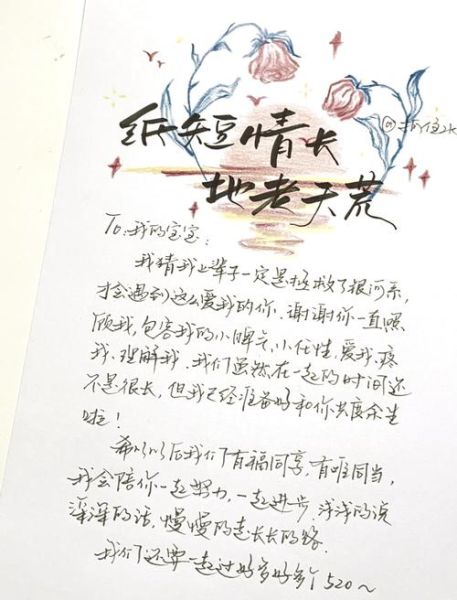 纸短情长
地老天荒
To:我的宝宝:
我猜我上辈子一定是拯救了银河系,
才会遇到这么爱我的你.谢谢你一直照
顾我,包容我的小脾气,小任性.爱我.疼
我.理解我.我们虽然在一起的时间还
不是很长,但我已经准备好和你共度余生
啦!
希望以后我们有福同享,有难同当,
我会陪你一起努力,一起进步.浅浅的说
深深的话,慢慢的走长长的路.
我们还要一起过好多好多个520~